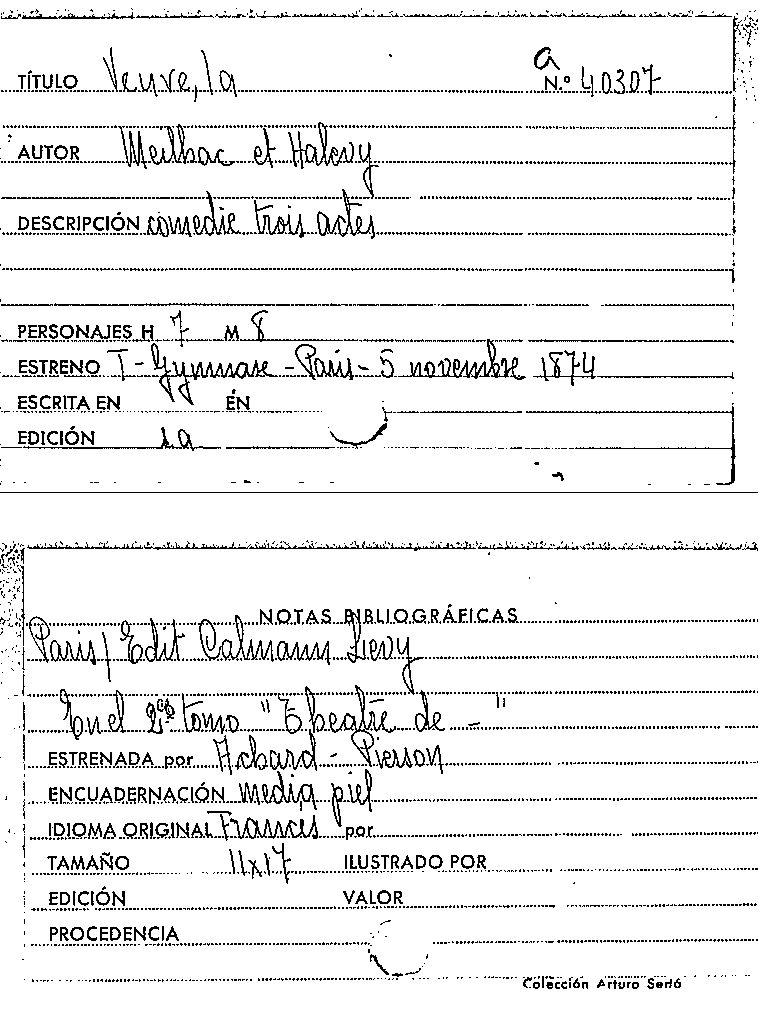 a
TÍTULO Veuve, la N.º 40307
AUTOR Meilhac et Halevy
DESCRIPCIÓN comedie trois actes
PERSONAJES H 7 M 8
ESTRENO T - Gymnase - Paris - 5 novembre 1874
ESCRITA EN EN
EDICIÓN 1a
NOTAS BIBLIOGRÁFICAS
Paris / Edit Calmann Levy
En el 2º tomo "Theatre de - "
ESTRENADA por Achard - Pierson
ENCUADERNACIÓN media piel
IDIOMA ORIGINAL Frances por
TAMAÑO 11x17 ILUSTRADO POR
EDICIÓN VALOR
PROCEDENCIA
Colección Arturo Sedó